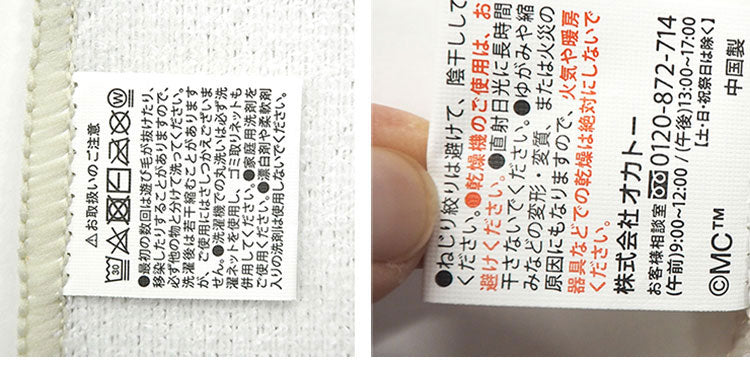 ⚠お取扱いのご注意
30
W
●最初の数回は遊び毛が抜けたり、
移染したりすることがありますので、
必ず他の物と分けて洗ってください。
洗濯後は若干縮むことがあります
が、ご使用にはさしつかえございま
せん。●洗濯機での丸洗いは必ず洗
濯ネットを使用し、ゴミ取りネットも
併用してください。●家庭用洗剤を
ご使用ください。●漂白剤や柔軟剤
入りの洗剤は使用しないでください。
●ねじり絞りは避けて、陰干しして
ください。●乾燥機のご使用は、お
避けください。●直射日光に長時間
干さないでください。●ゆがみや縮
みなどの変形・変質、または火災の
原因にもなりますので、火気や暖房
器具などでの乾燥は絶対にしないで
ください。
株式会社 オカトー
お客様相談室 0120-872-714
(午前)9:00~12:00 / (午後)13:00~17:00
【土・日・祝祭日は除く】
©MC™ 中国製